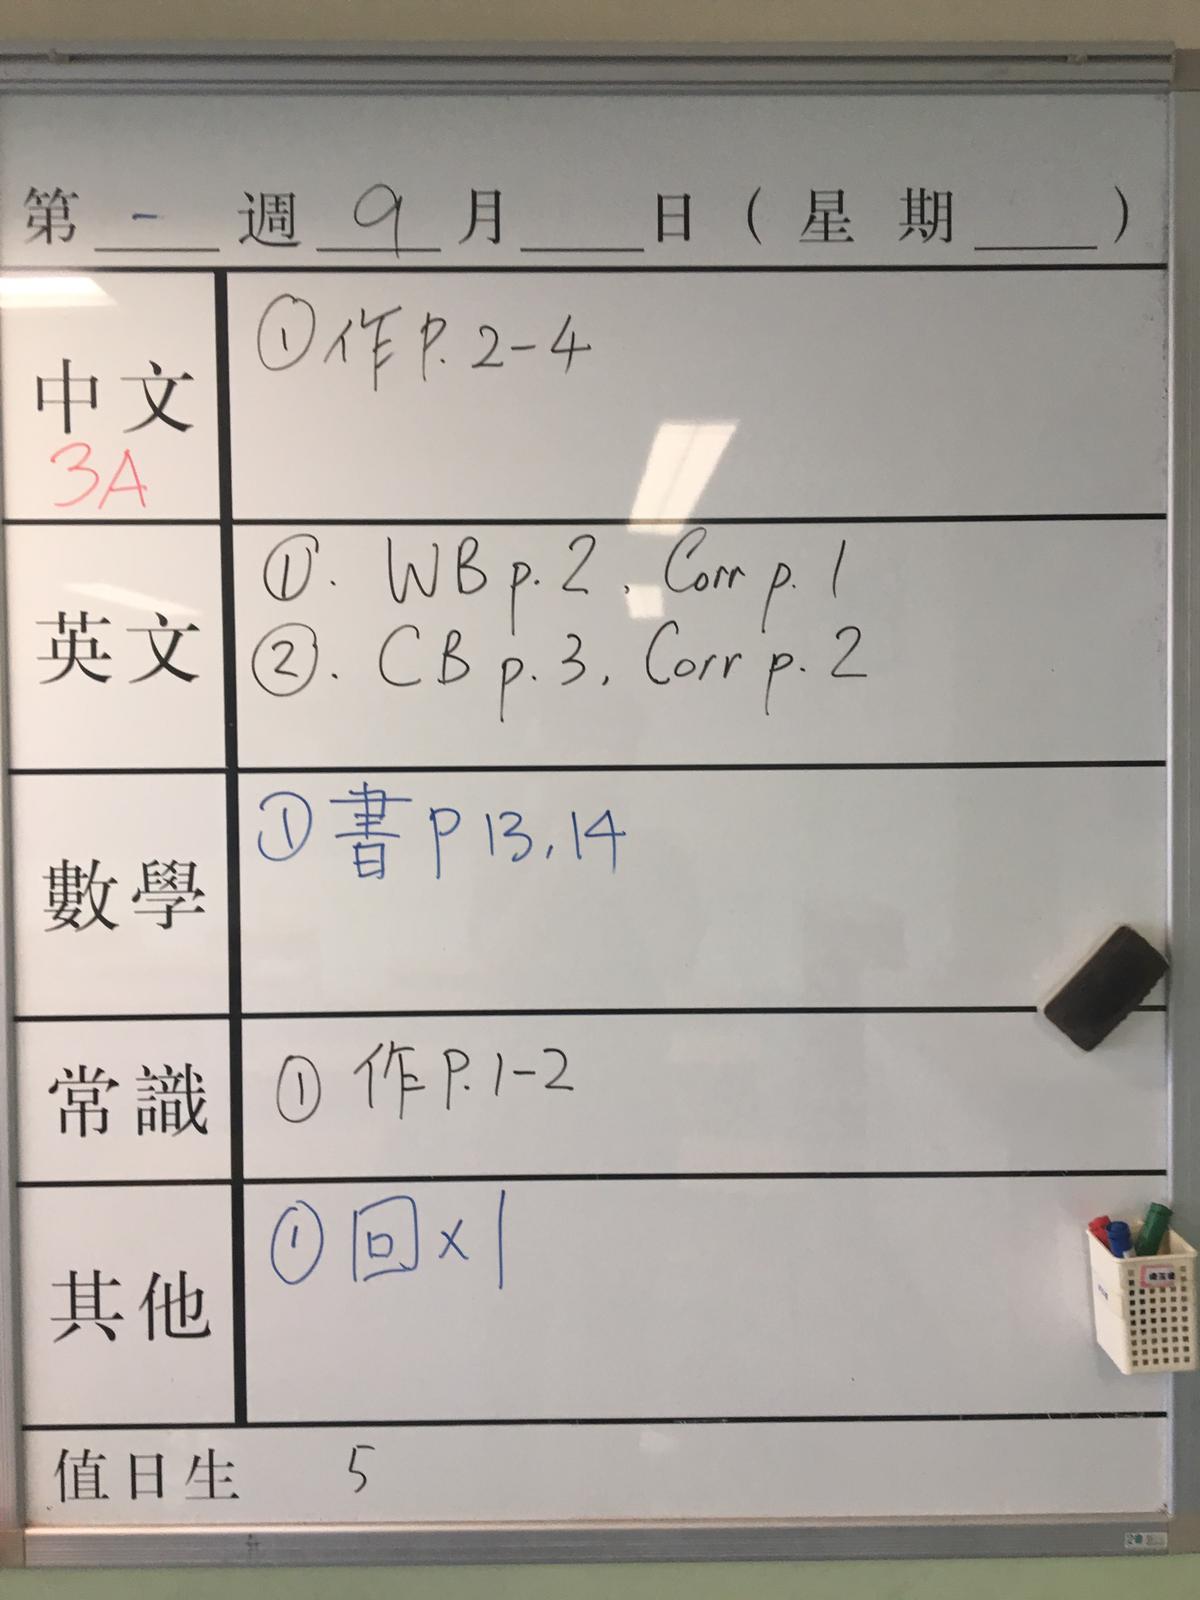 第 一 週 9 月 日 ( 星 期 )
中文
3A
① 作 P. 2-4
英文
①. WB p. 2 , Corr p. 1
②. CB p. 3 , Corr p. 2
數學
① 書 P 13, 14
常識
① 作 P. 1-2
其他
① 回 x 1
值日生 5